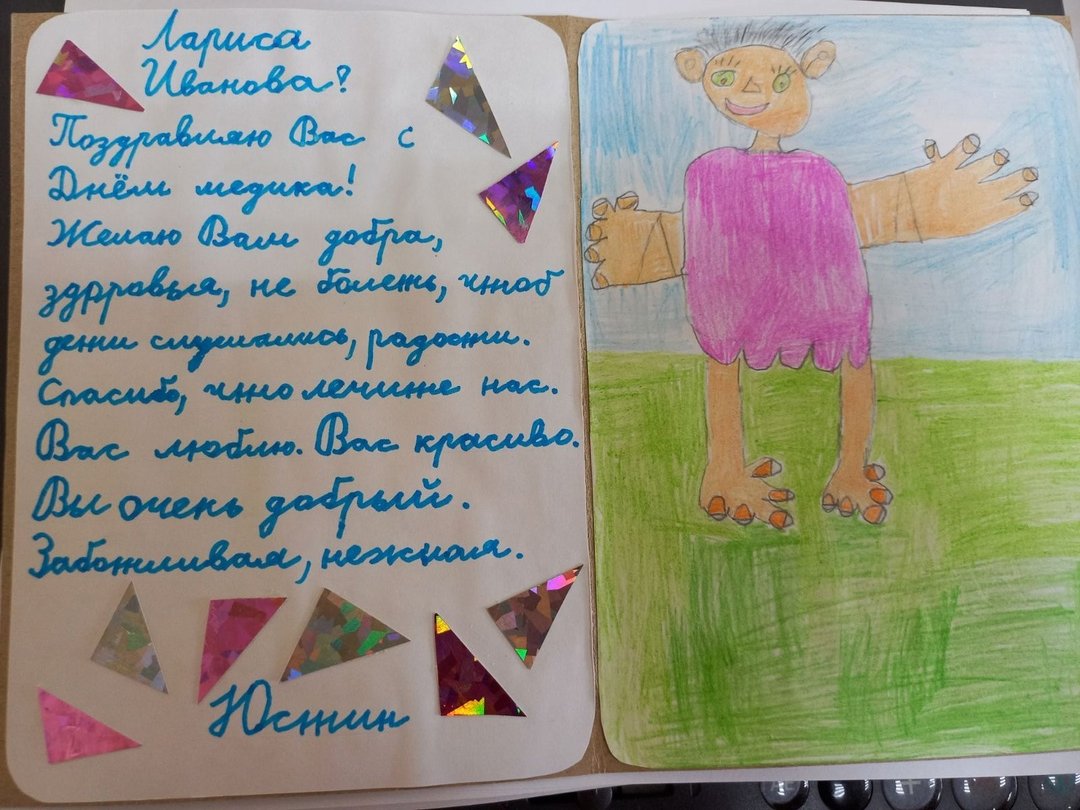 Лариса
Иванова!
Поздравляю Вас с
Днём медика!
Желаю Вам добра,
здрравья, не болеть, чтоб
дети слушались, радости.
Спасибо, что лечите нас.
Вас люблю. Вас красиво.
Вы очень добрый.
Заботливая, нежная.
Юстин